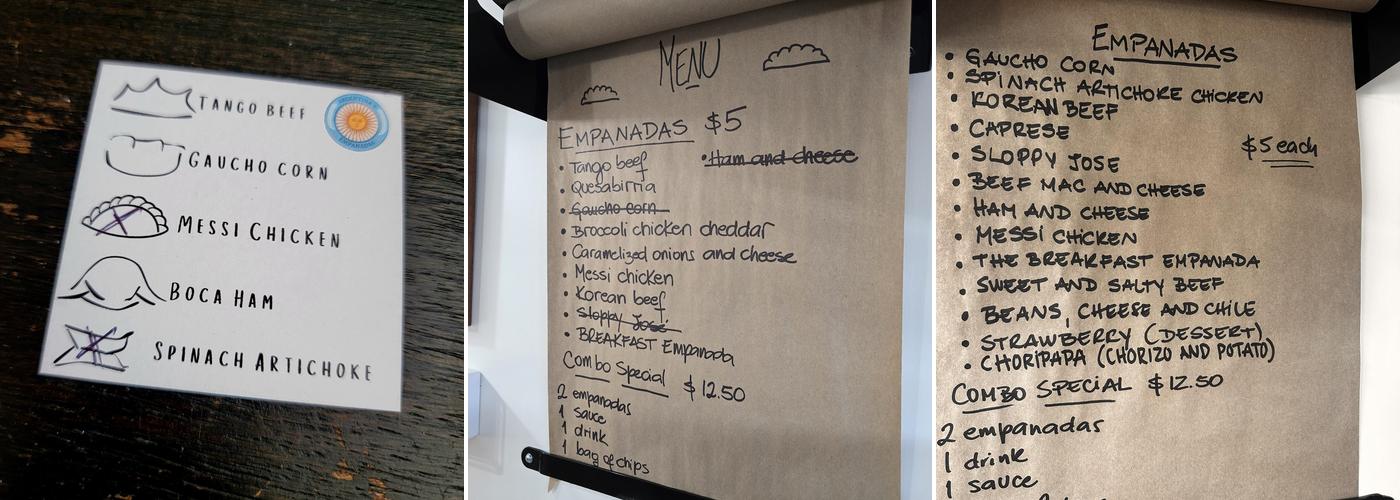 TANGO BEEF
ARGENTINA'S
EMPANADAS
GAUCHO CORN
MESSI CHICKEN
BOCA HAM
SPINACH ARTICHOKE
MENU
EMPANADAS $5
• Tango beef
• Ham and cheese
• Quesabirria
• Gaucho corn
• Broccoli chicken cheddar
• Caramelized onions and cheese
• Messi chicken
• Korean beef
• Sloppy José
• BREAKFAST Empanada
Combo Special $12.50
2 empanadas
1 sauce
1 drink
1 bag of chips
EMPANADAS
• GAUCHO CORN
• SPINACH ARTICHOKE CHICKEN
• KOREAN BEEF
• CAPRESE
$5 each
• SLOPPY JOSE
• BEEF MAC AND CHEESE
• HAM AND CHEESE
• MESSI CHICKEN
• THE BREAKFAST EMPANADA
• SWEET AND SALTY BEEF
• BEANS, CHEESE AND CHILE
• STRAWBERRY (DESSERT)
• CHORIPAPA (CHORIZO AND POTATO)
COMBO SPECIAL $12.50
2 empanadas
1 drink
1 sauce